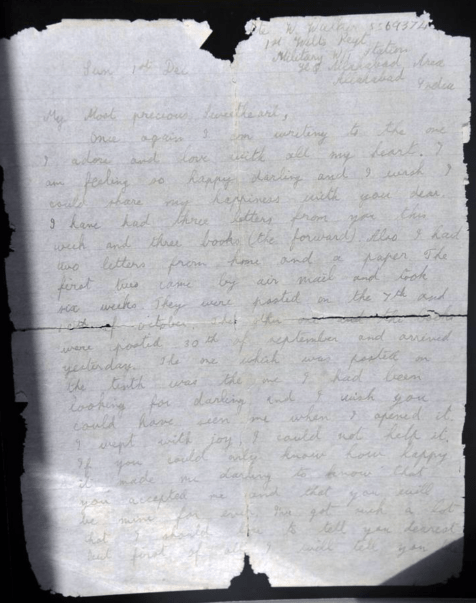 Pte W. Walker 5569374
1st Wilts Regt
Military W/T Station
Allahabad Area
Allahabad
India
Sun 1st Dec
My Most precious Sweetheart,
Once again I am writing to the one
I adore and love with all my heart. I
am feeling so happy darling and I wish I
could share my happiness with you dear.
I have had three letters from you this
week and three books (the forward) Also I had
two letters from home and a paper. The
first two came by air mail and took
six weeks. They were posted on the 7th and
of october
were posted 10th of september and arrived
yesterday. The one which was posted on
the tenth was the one I had been
looking for darling and I wish you
could have seen me when I opened it
I wept with joy. I could not help it,
If you could only know how happy
it made me darling to know that
you accepted me and that you will
be mine for ever. Ive got such a lot
that I should to tell you dearest
but first of all I will tell you